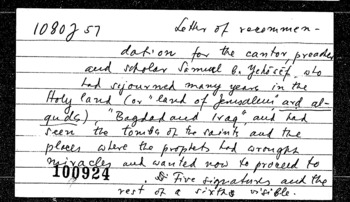 1080 J 57 Letter of recommen-
dation for the cantor, preacher
and scholar Semuel b. Yehōsēf, who
had sojourned many years in the
Holy land (or "land of Jerusalem, ard al-
quds), "Bagdad and Iraq", and had
seen the tombs of the saints and the
places where the prophets had wrought
miracles and wanted now to proceed to
100924 . Five signatures and the
rest of a sixth visible.